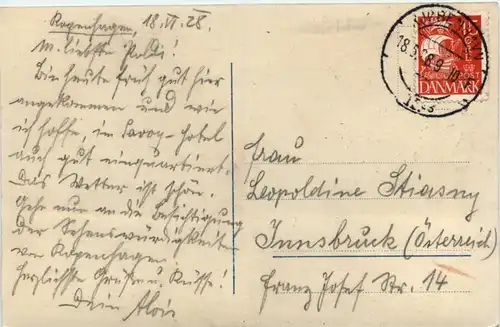 Kopenhagen, 18.VI.28.
M. liebste Poldi!
Bin heute früh gut hier
angekommen und wie
ich hoffe, in Savoy-Hotel
auch gut einquartiert.
Das Wetter ist schön.
Gehe nun an die Besichtigung
der Sehenswürdigkeiten
von Kopenhagen.
Herzlichste Grüße u. Küsse!
Dein Alois
DANMARK
Frau
Leopoldine Stiasny
Innsbruck (Österreich)
Franz Josef Str. 14